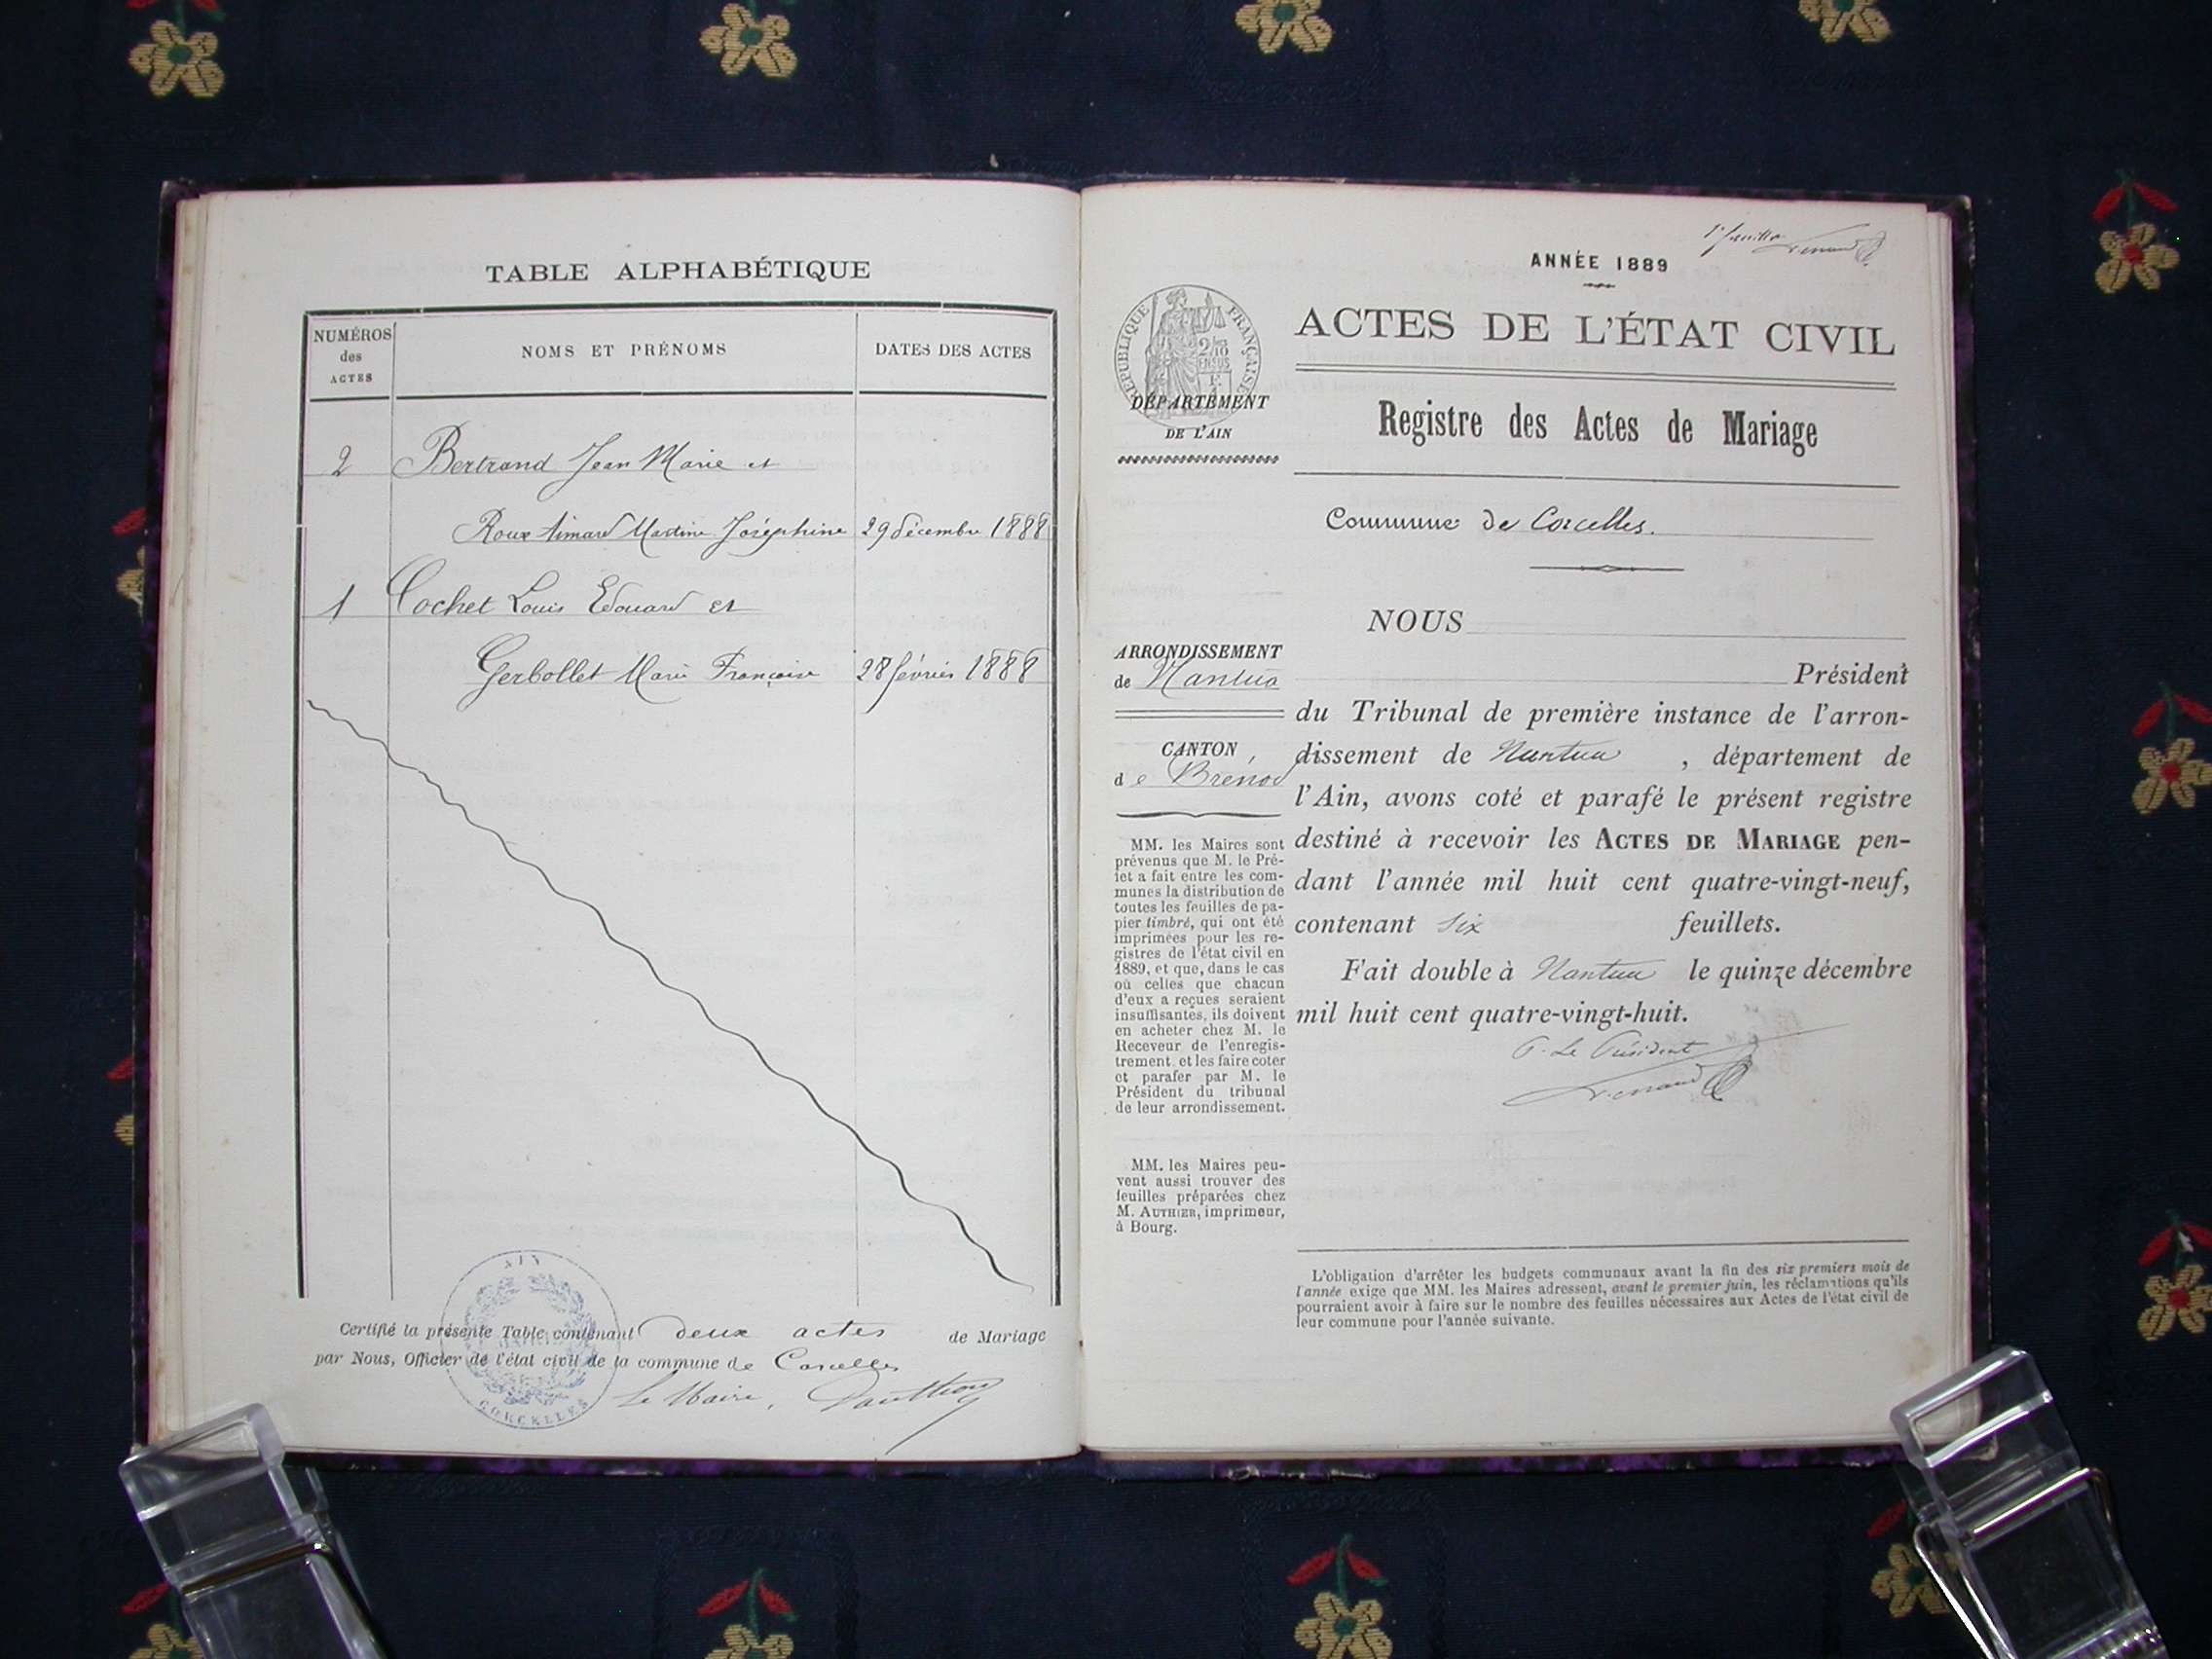 TABLE ALPHABÉTIQUE
NUMÉROS
des
ACTES
NOMS ET PRÉNOMS
DATES DES ACTES
2 Bertrand Jean Marie et
Roux Aimard Martine Joséphine 29 décembre 1888
1 Cochet Louis Edouard et
Gerbollet Marie Françoise 28 février 1888
Certifié la présente Table, contenant deux actes de Mariage
par Nous, Officier de l'état civil de la commune de Corcelles
Le Maire,
AIN
MAIRIE
CORCELLES
1er feuillet
ANNÉE 1889
RÉPUBLIQUE FRANÇAISE
2/10
EN SUS
DÉPARTEMENT
DE L'AIN
ACTES DE L'ÉTAT CIVIL
Registre des Actes de Mariage
Commune de Corcelles.
ARRONDISSEMENT
de Nantua
CANTON
de Brénod
MM. les Maires sont
prévenus que M. le Pré-
fet a fait entre les com-
munes la distribution de
toutes les feuilles de pa-
pier timbré, qui ont été
imprimées pour les re-
gistres de l'état civil en
1889, et que, dans le cas
où celles que chacun
d'eux a reçues seraient
insuffisantes, ils doivent
en acheter chez M. le
Receveur de l'enregis-
trement et les faire coter
et parafer par M. le
Président du tribunal
de leur arrondissement.
MM. les Maires peu-
vent aussi trouver des
feuilles préparées chez
M. AUTHIER, imprimeur,
à Bourg.
NOUS
Président
du Tribunal de première instance de l'arron-
dissement de Nantua , département de
l'Ain, avons coté et parafé le présent registre
destiné à recevoir les ACTES DE MARIAGE pen-
dant l'année mil huit cent quatre-vingt-neuf,
contenant six feuillets.
Fait double à Nantua le quinze décembre
mil huit cent quatre-vingt-huit.
P. Le Président
L'obligation d'arrêter les budgets communaux avant la fin des six premiers mois de
l'année exige que MM. les Maires adressent, avant le premier juin, les réclamations qu'ils
pourraient avoir à faire sur le nombre des feuilles nécessaires aux Actes de l'état civil de
leur commune pour l'année suivante.